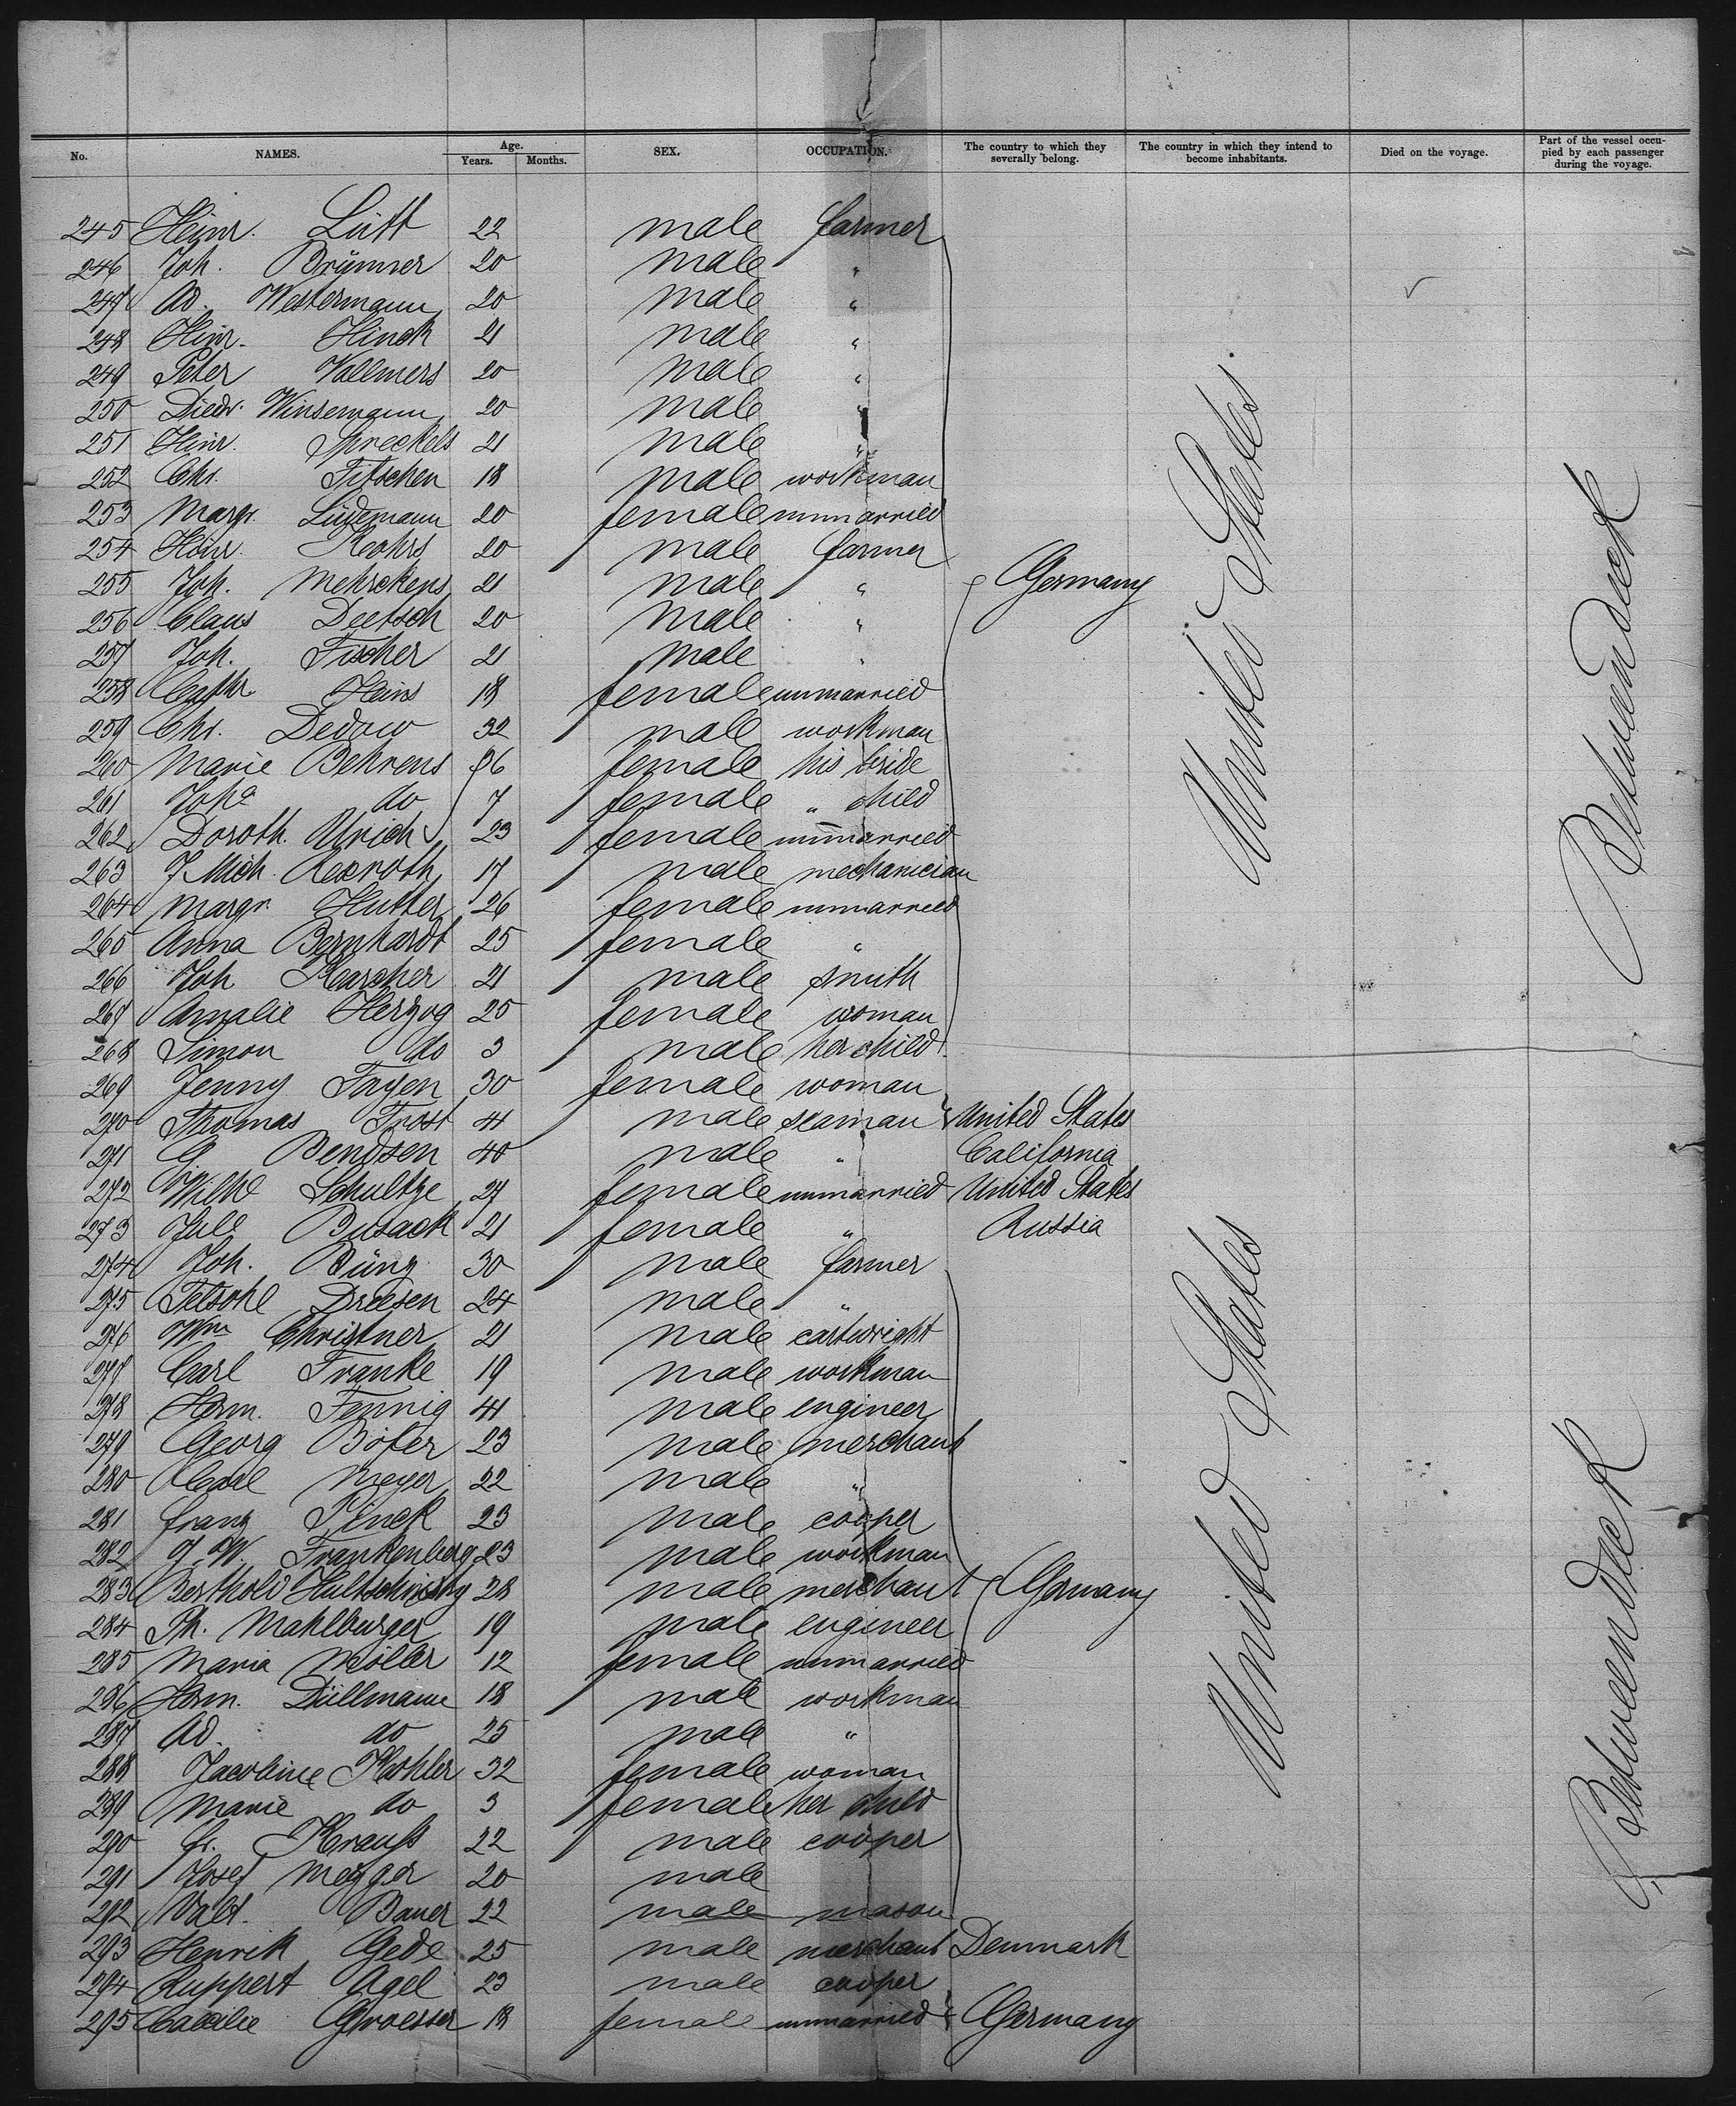 No. NAMES. Age. Years. Months. SEX. OCCUPATION. The country to which they severally belong. The country in which they intend to become inhabitants. Died on the voyage. Part of the vessel occupied by each passenger during the voyage.
245 Heinr. Lütt 22 male farmer
246 Joh. Brünner 20 male "
247 Ad. Westermann 20 male "
248 Hinr. Hinck 21 male "
249 Peter Vollmers 20 male "
250 Diedr. Winsemann 20 male "
251 Heinr. Spreckels 21 male "
252 Chr. Titschen 18 male workman
253 Margr. Lüdemann 20 female unmarried
254 Heinr. Kohrs 20 male farmer
255 Joh. Mehrckens 21 male " Germany
256 Claus Deetsch 20 male "
257 Joh. Fischer 21 male "
258 Cathr. Heins 18 female unmarried
259 Chr. Dedow 32 male workman
260 Marie Behrens 26 female his bride
261 Joha do 7 female " child
262 Doroth. Ulrich 23 female unmarried
263 J Mich. Rexroth 17 male mechanician
264 Margr. Hutter 26 female unmarried
265 Anna Bernhardt 25 female "
266 Joh Karcher 21 male smith
267 Amalie Herzog 25 female woman
268 Simon do 3 male her child
269 Jenny Fayen 30 female woman
270 Thomas Frost 41 male seaman United States
271 G Bendsen 40 male " California
272 Wilhe Schultze 27 female unmarried United States
273 Jule Busack 21 female " Russia
274 Joh. Büng 30 male farmer
275 Driesen 24 male "
276 Wm Christner 21 male cartwright
277 Carl Franke 19 male workman
278 Herm. Fennig 41 male engineer
279 Georg Böfer 23 male merchant
280 Carl Meyer 22 male "
281 Franz Pinck 23 male cooper
282 J. W. Frankenberg 23 male workman
283 Berthold 28 male merchant Germany
284 Ph. Mahlburger 19 male engineer
285 Maria Möller 12 female unmarried
286 Herm. Düllmann 18 male workman
287 Ad. do 25 male "
288 Jacobine Kohler 32 female woman
289 Marie do 3 female her child
290 Fr. Krauss 22 male cooper
291 Josef Mezger 20 male
292 Valt. Bauer 22 male mason
293 Henrik Gede 25 male merchant Denmark
294 Ruppert Agel 23 male cooper
295 Caecilie Groesser 18 female unmarried Germany
United States.
United States
Between deck
Between deck